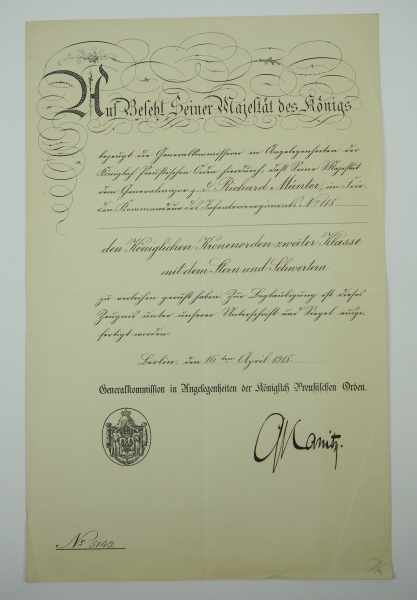 Auf Befehl Seiner Majestät des Königs
bezeugt die Generalkommission in Angelegenheiten der
Königlich Preußischen Orden hierdurch, daß Seine Majestät
dem Generalmajor z. D. Richard Münter, im Frie-
den Kommandeur des Infanterieregiments Nº
den Königlichen Kronenorden zweiter Klasse
mit dem Stern und Schwertern
zu verleihen geruht haben. Zur Beglaubigung ist dieses
Zeugnis unter unserer Unterschrift und Siegel ausge-
fertigt worden.
Berlin, den 16 ten April
Generalkommission in Angelegenheiten der Königlich Preußischen Orden.
Kanitz.
Nº